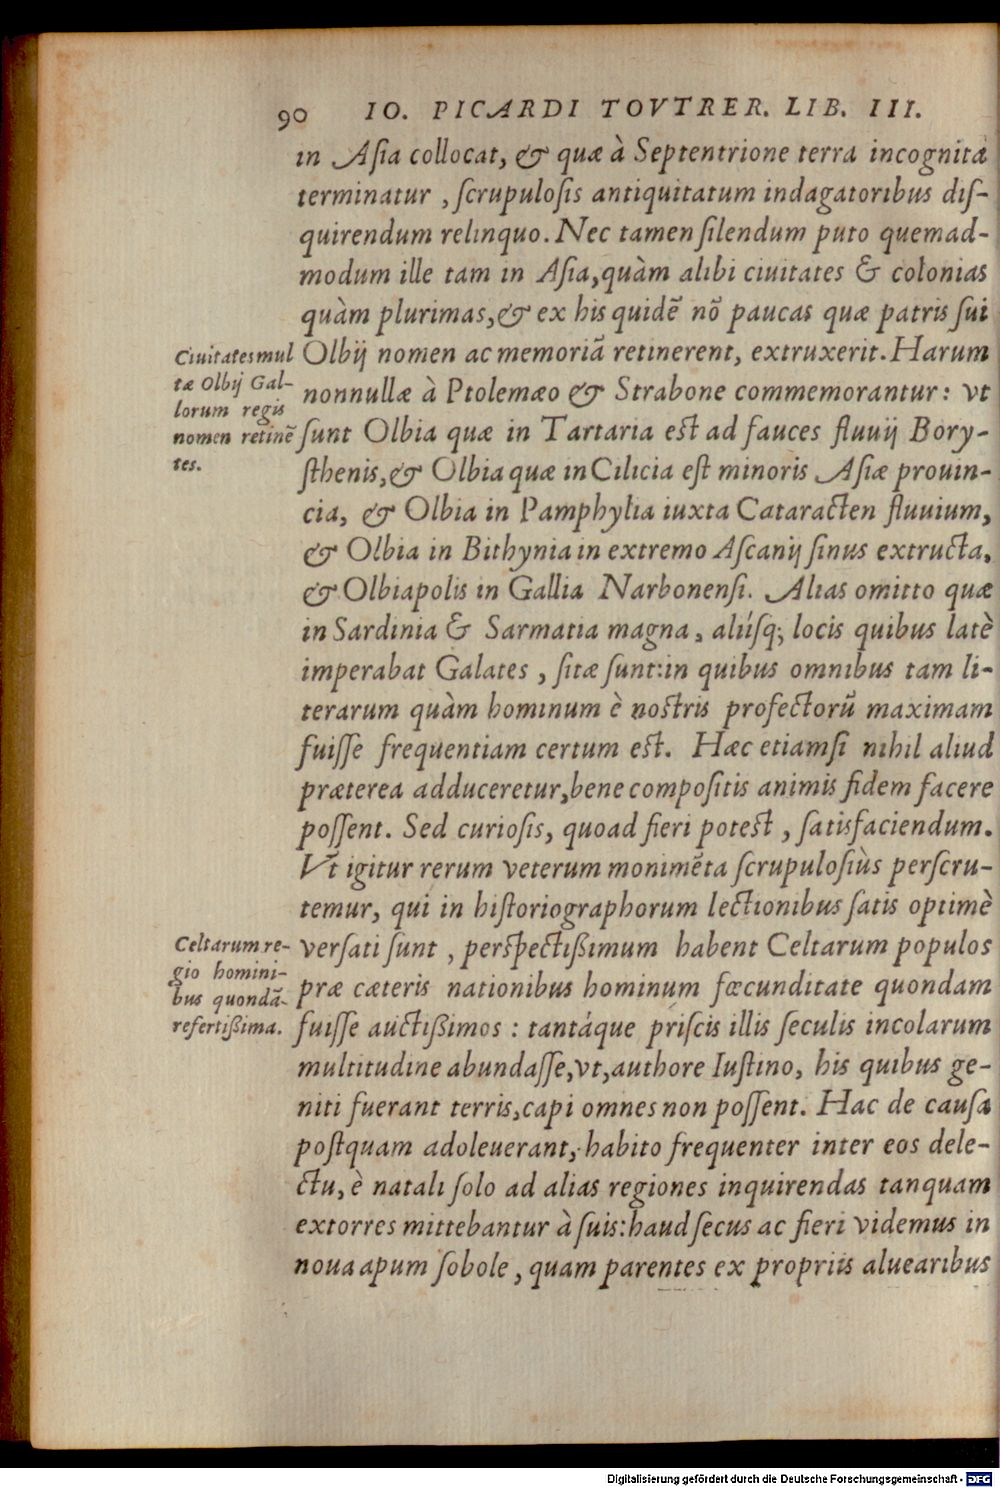 90 IO. PICARDI TOVTRER. LIB. III.
in Aſia collocat, & quæ à Septentrione terra incognita
terminatur, ſcrupuloſis antiquitatum indagatoribus diſ-
quirendum relinquo. Nec tamen ſilendum puto quemad-
modum ille tam in Aſia, quàm alibi ciuitates & colonias
quàm plurimas, & ex his quidẽ nõ paucas quæ patris ſui
Olbij nomen ac memoriã retinerent, extruxerit. Harum
nonnullæ à Ptolemæo & Strabone commemorantur: vt
ſunt Olbia quæ in Tartaria eſt ad fauces fluuij Bory-
ſthenis, & Olbia quæ in Cilicia eſt minoris Aſiæ prouin-
cia, & Olbia in Pamphylia iuxta Cataracten fluuium,
& Olbia in Bithynia in extremo Aſcanij ſinus extructa,
& Olbiapolis in Gallia Narbonenſi. Alias omitto quæ
in Sardinia & Sarmatia magna, aliíſq; locis quibus latè
imperabat Galates, ſitæ ſunt: in quibus omnibus tam li-
terarum quàm hominum è noſtris profectorũ maximam
fuiſſe frequentiam certum eſt. Hæc etiamſi nihil aliud
præterea adduceretur, bene compoſitis animis fidem facere
poſſent. Sed curioſis, quoad fieri poteſt, ſatisfaciendum.
Vt igitur rerum veterum monimẽta ſcrupuloſiùs perſcru-
temur, qui in hiſtoriographorum lectionibus ſatis optimè
verſati ſunt, perſpectißimum habent Celtarum populos
præ cæteris nationibus hominum fœcunditate quondam
fuiſſe auctißimos: tantáque priſcis illis ſeculis incolarum
multitudine abundaſſe, vt, authore Iuſtino, his quibus ge-
niti fuerant terris, capi omnes non poſſent. Hac de cauſa
poſtquam adoleuerant, habito frequenter inter eos dele-
ctu, è natali ſolo ad alias regiones inquirendas tanquam
extorres mittebantur à ſuis: haud ſecus ac fieri videmus in
noua apum ſobole, quam parentes ex propriis aluearibus
Ciuitates mul
tæ Olbij Gal-
lorum regis
nomen retinẽ
tes.
Celtarum re-
gio homini-
bus quondã
refertißima.
Digitalisierung gefördert durch die Deutsche Forschungsgemeinschaft - DFG